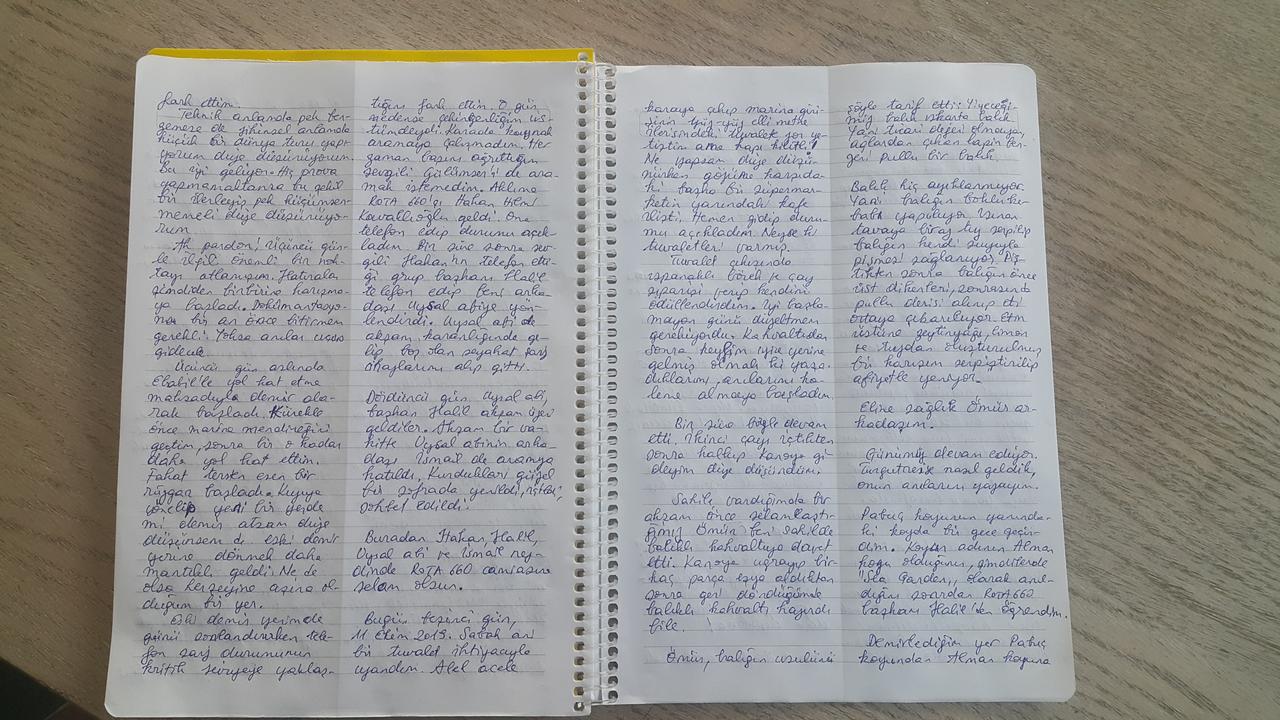 fark ettim.
Teknik anlamda pek ben-
zemese de zihinsel anlamda
küçük bir dünya turu yapı-
yorum diye düşünüyorum.
Bu iyi geliyor. Hiç prova
yapmamaktansa bu şekil
bir ilerleyiş pek küçümser-
memeli diye düşünüyo-
rum
Ah pardon! Üçüncü gün-
le ilgili önemli bir nok-
tayı atlamışım. Hatıralar
şimdiden birbirine karışma-
ya başladı. Dokümantasyo-
nu bir an önce bitirmem
gerekli. Yoksa anılar uçup
gidecek.
Üçüncü gün aslında
Ebabil'le yol kat etme
maksadıyla demir ala-
rak başladı. Kürekle
önce marina mendireğini
geçtim, sonra bir o kadar
daha yol kat ettim.
Fakat tersten esen bir
rüzgar başladı. Kuyuya
yönelip yeni bir yerde
mi demir atsam diye
düşünsem de eski demir
yerine dönmek daha
mantıklı geldi. Ne de
olsa herşeyine aşina ol-
duğum bir yer.
Eski demir yerimde
günü sonlandırırken tele-
fon şarj durumunun
kritik seviyeye yaklaş-
tığını fark ettim. O gün
nedense çekingenliğim üs-
tümdeydi. Karada kaynak
aramaya çalışmadım. Her
zaman başını ağrıttığım
sevgili Gülümser'i de ara-
mak istemedim. Aklıma
ROTA 660'çı Hakan
Kavallıoğlu geldi. Ona
telefon edip durumu açık-
ladım. Bir süre sonra sev-
gili Hakan'ın telefon etti-
ği grup başkanı Halil
telefon edip beni arka-
daşı Uysal abiye yön-
lendirdi. Uysal abi de
akşam karanlığında ge-
lip boşalan seyahat şarj
cihazlarımı alıp gitti.
Dördüncü gün Uysal abi,
başkan Halil akşam üzeri
geldiler. Akşam bir va-
kitte Uysal abinin arka-
daşı İsmail de aramıza
katıldı. Kurdukları güzel
bir sofrada yenildi, içildi,
sohbet edildi.
Buradan Hakan, Halil,
Uysal abi ve İsmail nez-
dinde ROTA 660 camiasına
selam olsun.
Bugün beşinci gün,
11 Ekim 2019. Sabah ani
bir tuvalet ihtiyacıyla
uyandım. Alel acele
karaya çıkıp marina giri-
şinin yüz-yüz elli metre
ilerisindeki tuvalete zor ye-
tiştim ama kapı kilitli!
Ne yapsam diye düşü-
nürken gözüme karşıda-
ki başka bir süpermar-
ketin yanındaki kafe
ilişti. Hemen gidip duru-
mu açıkladım. Neyse ki
tuvaletleri varmış.
Tuvalet çıkışında
ıspanaklı börek ve çay
siparişi verip kendimi
ödüllendirdim. İyi başla-
mayan günü düzeltmem
gerekiyordu. Kahvaltıdan
sonra keyfim iyice yerine
gelmiş olmalı ki yaşa-
dıklarımı, anılarımı ka-
leme almaya başladım.
Bir süre böyle devam
etti. İkinci çayı içtikten
sonra kalkıp Kanoya gi-
deyim diye düşündüm.
Sahile vardığımda bir
akşam önce selamlaştı-
ğımız Ömür beni sahilde
balıklı kahvaltıya davet
etti. Kanoya uğrayıp bir-
kaç parça eşya aldıktan
sonra geri döndüğümde
balıklı kahvaltı hazırdı
bile.
Ömür, balığın usulünü
şöyle tarif etti: Yiyeceği-
miz balık ıskarta balık.
Yani ticari değeri olmayan,
ağlardan çıkan lapin ben-
zeri pullu bir balık.
Balık hiç ayıklanmıyor.
Yani balığın
yapılıyor. Isınan
tavaya biraz tuz serpilip
balığın kendi suyuyla
pişmesi sağlanıyor. Piş-
tikten sonra balığın önce
üst dikenleri, sonrasında
pullu derisi alınıp eti
ortaya çıkarılıyor. Etin
üstüne zeytinyağı, limon
ve tuzdan oluşturulmuş
bir karışım serpiştirilip
afiyetle yeniyor.
Eline sağlık Ömür ar-
kadaşım.
Günümüz devam ediyor.
Turgutreis'e nasıl geldik,
onun anılarını yazayım.
Pabuç koyunun yanında-
ki koyda bir gece geçir-
dim. Koyun adının Alman
koyu olduğunu, şimdilerde
"Isla Garden" olarak anıl-
dığını sonradan ROTA 660
başkanı Halil'den öğrendim.
Demirlediğim yer Pabuç
koyundan Alman koyuna